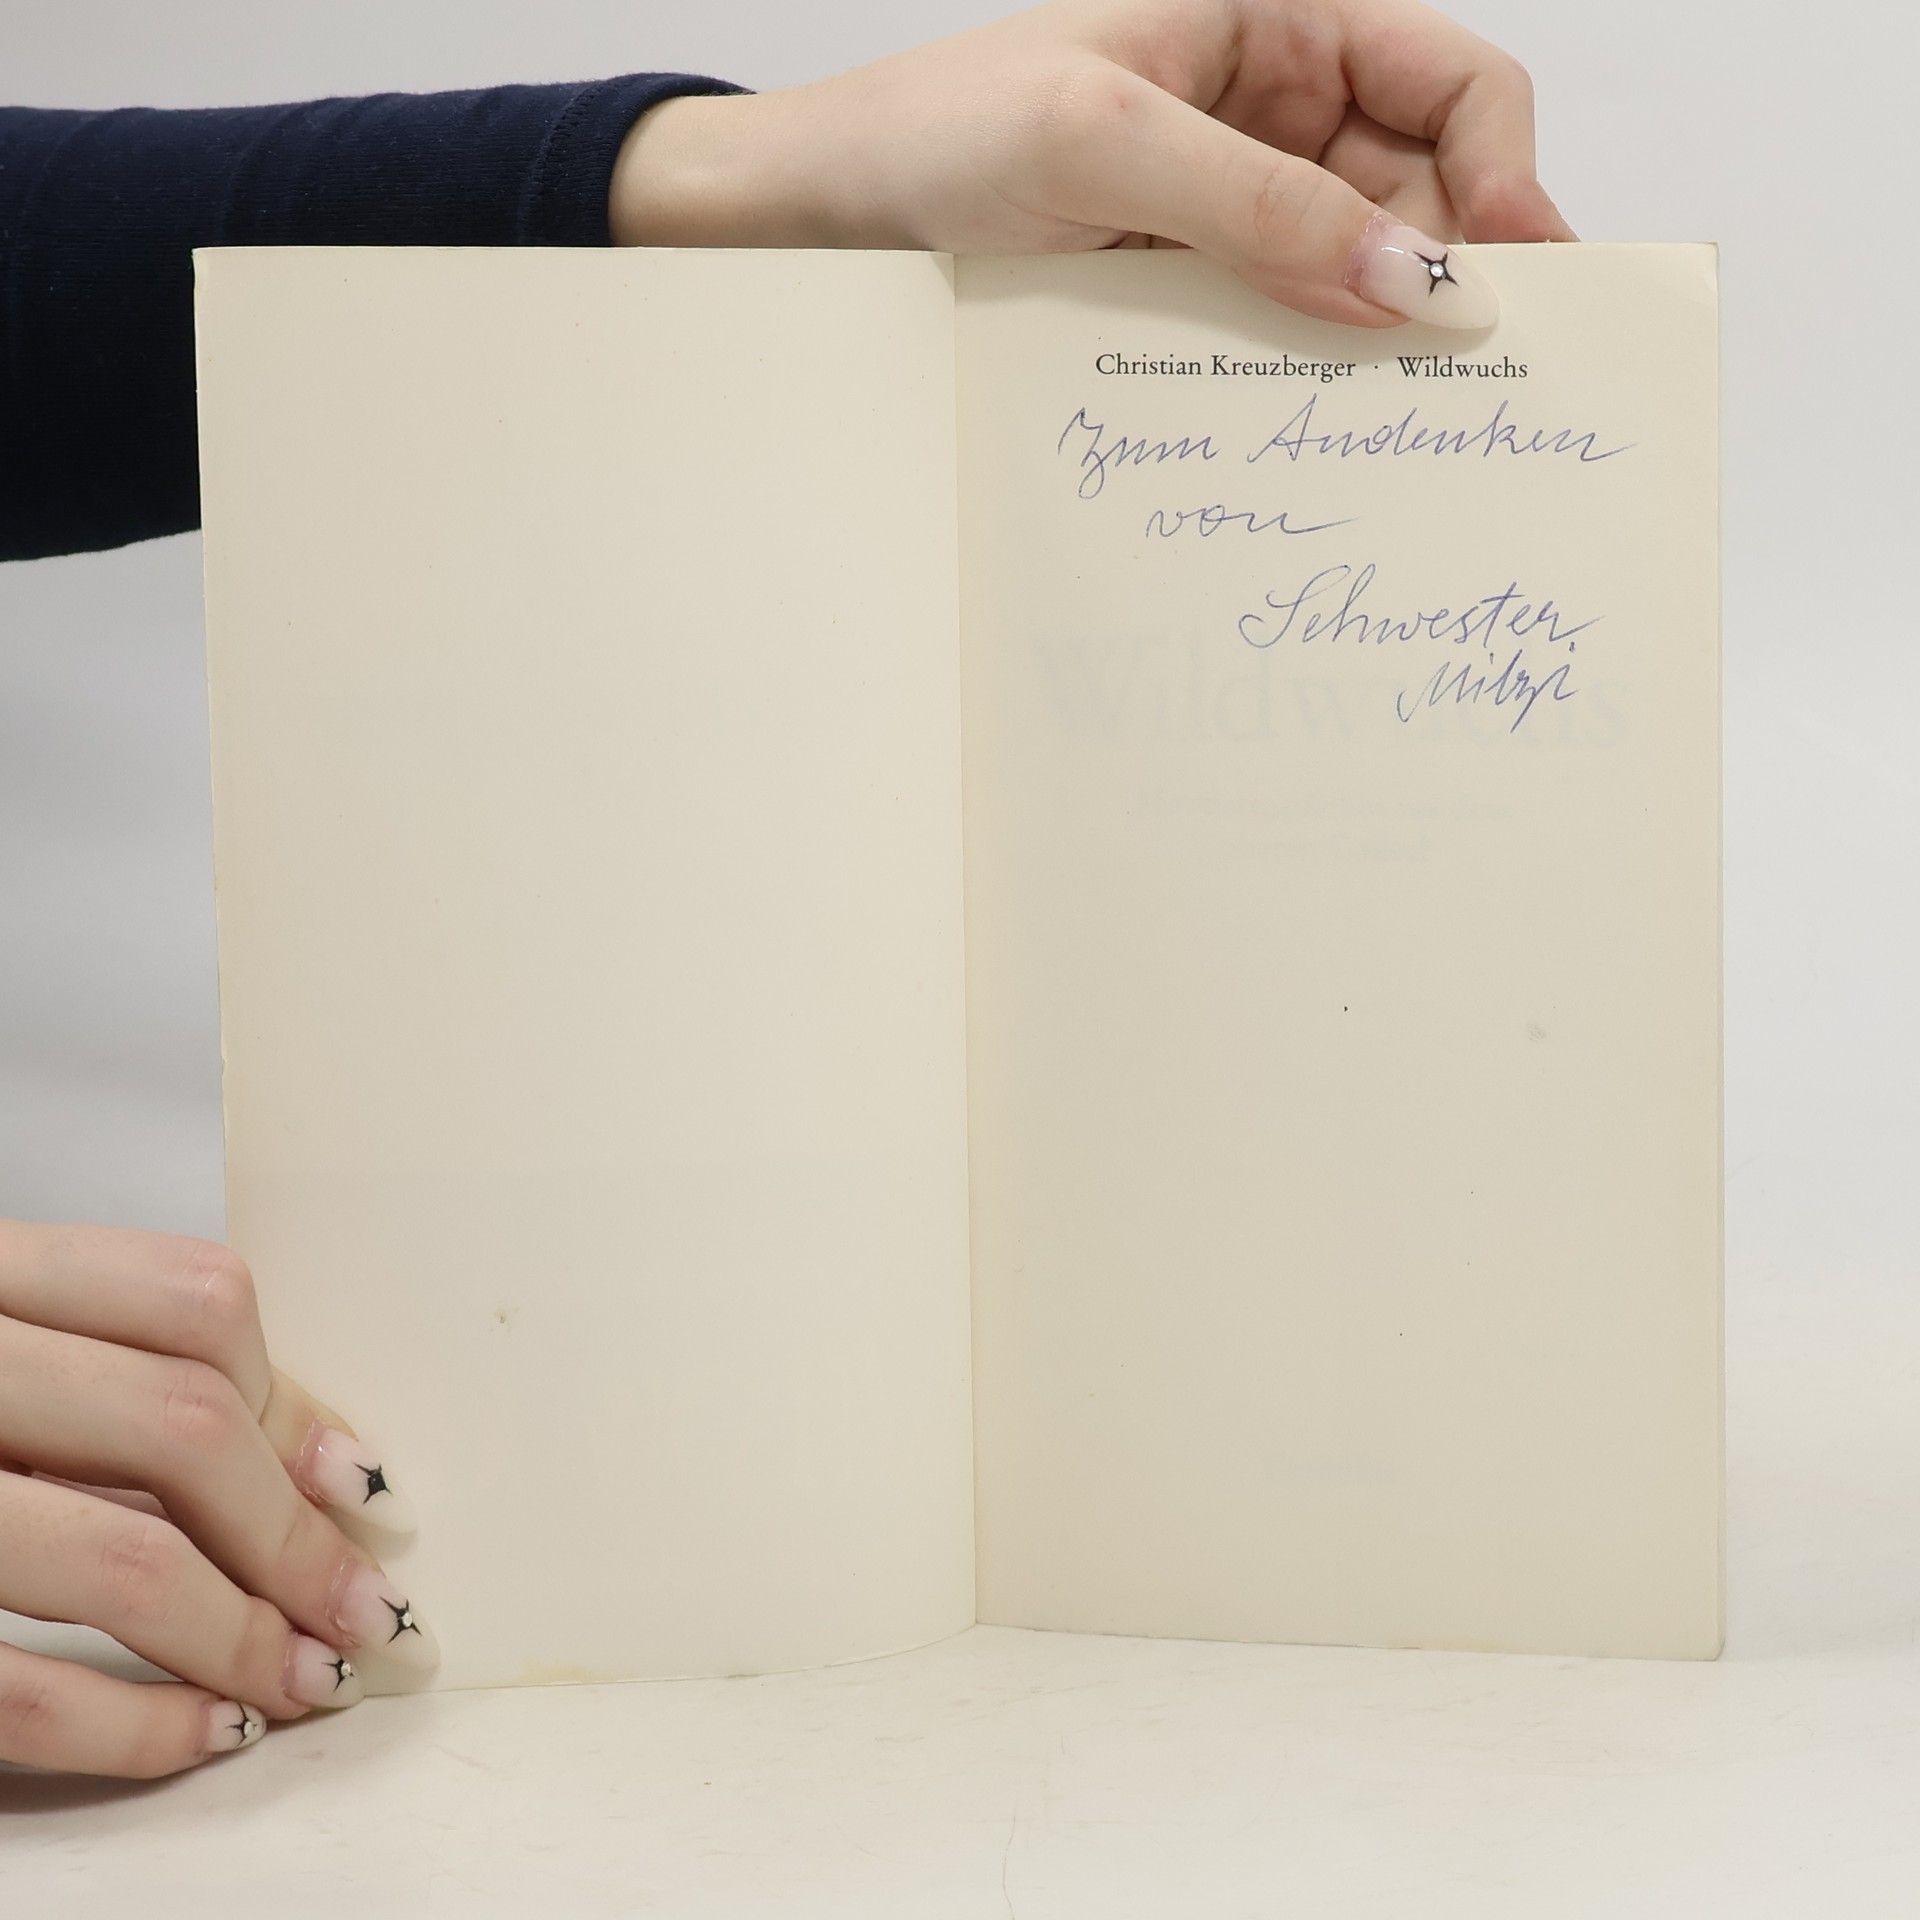 Christian Kreuzberger · Wildwuchs
Zum Andenken
von
Schwester
Mitzi